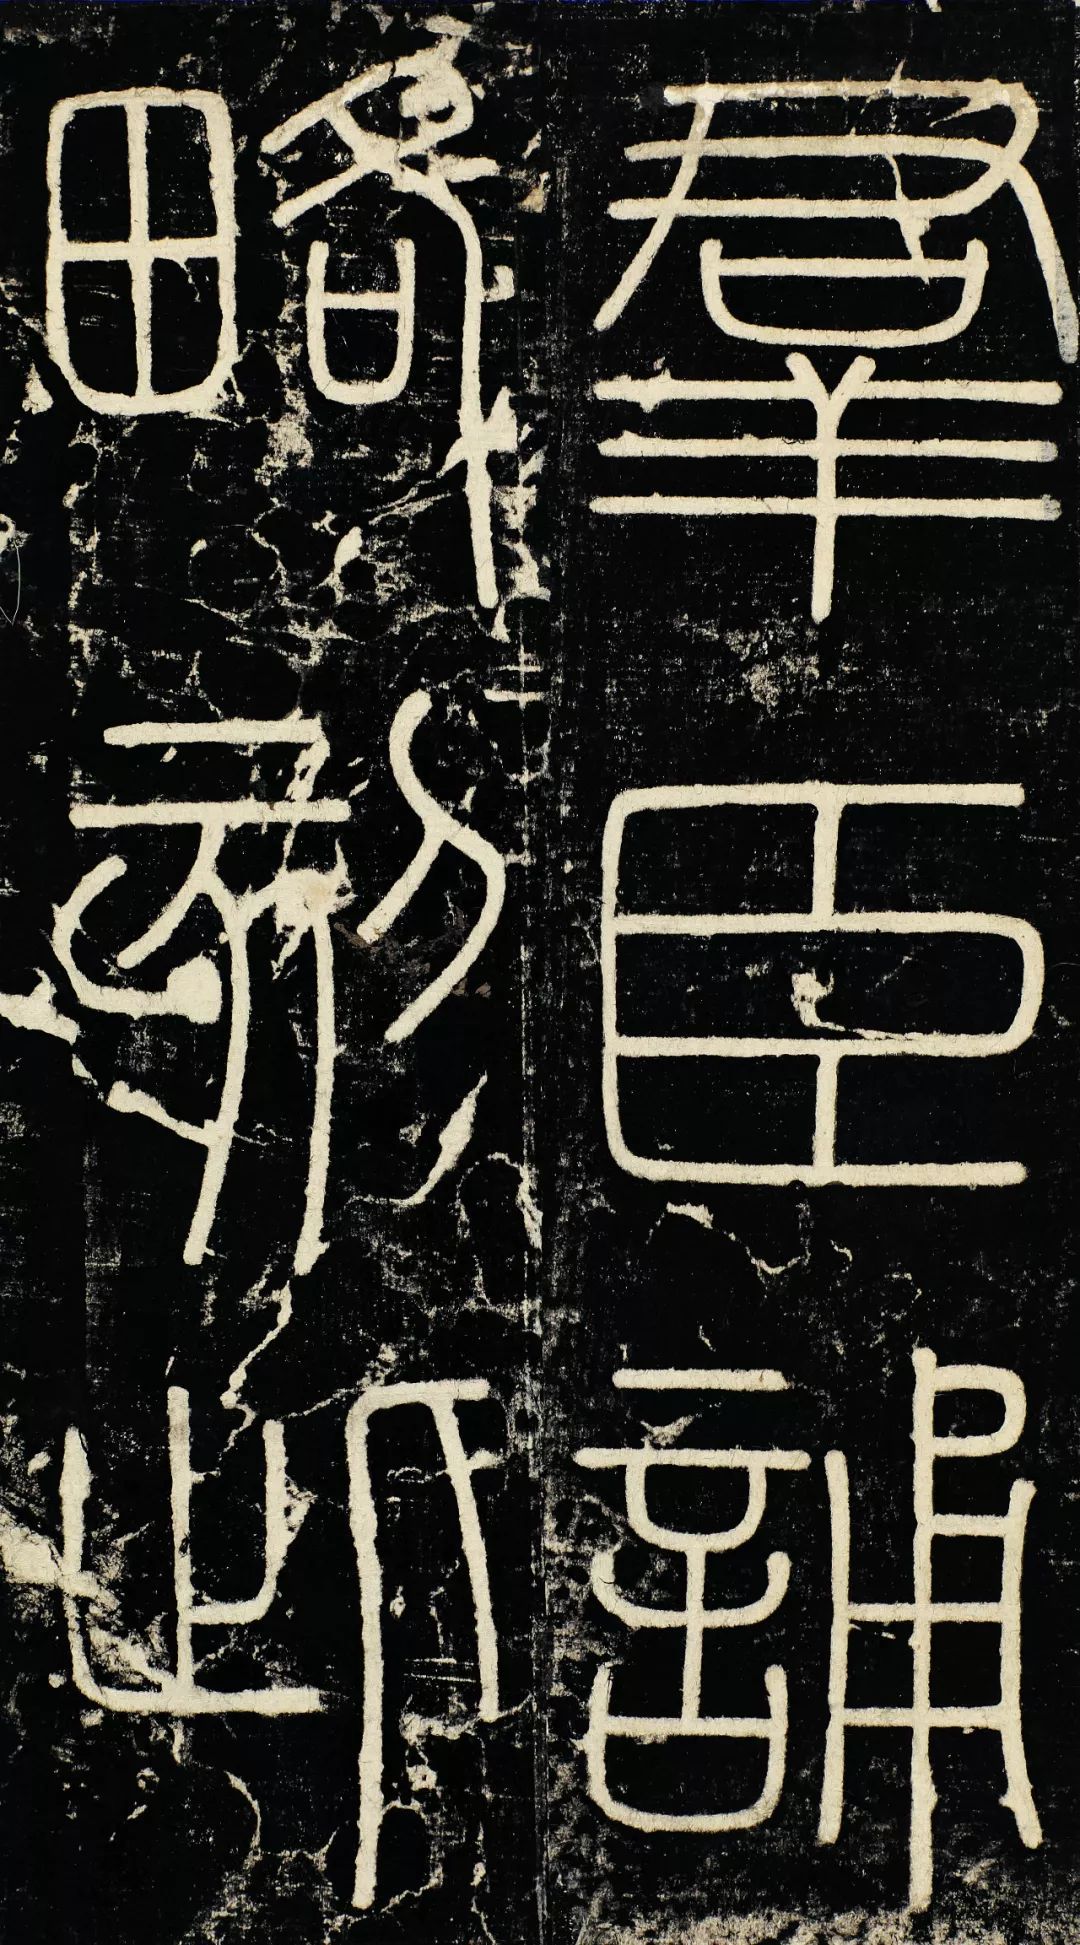 羣臣誦
略刻此